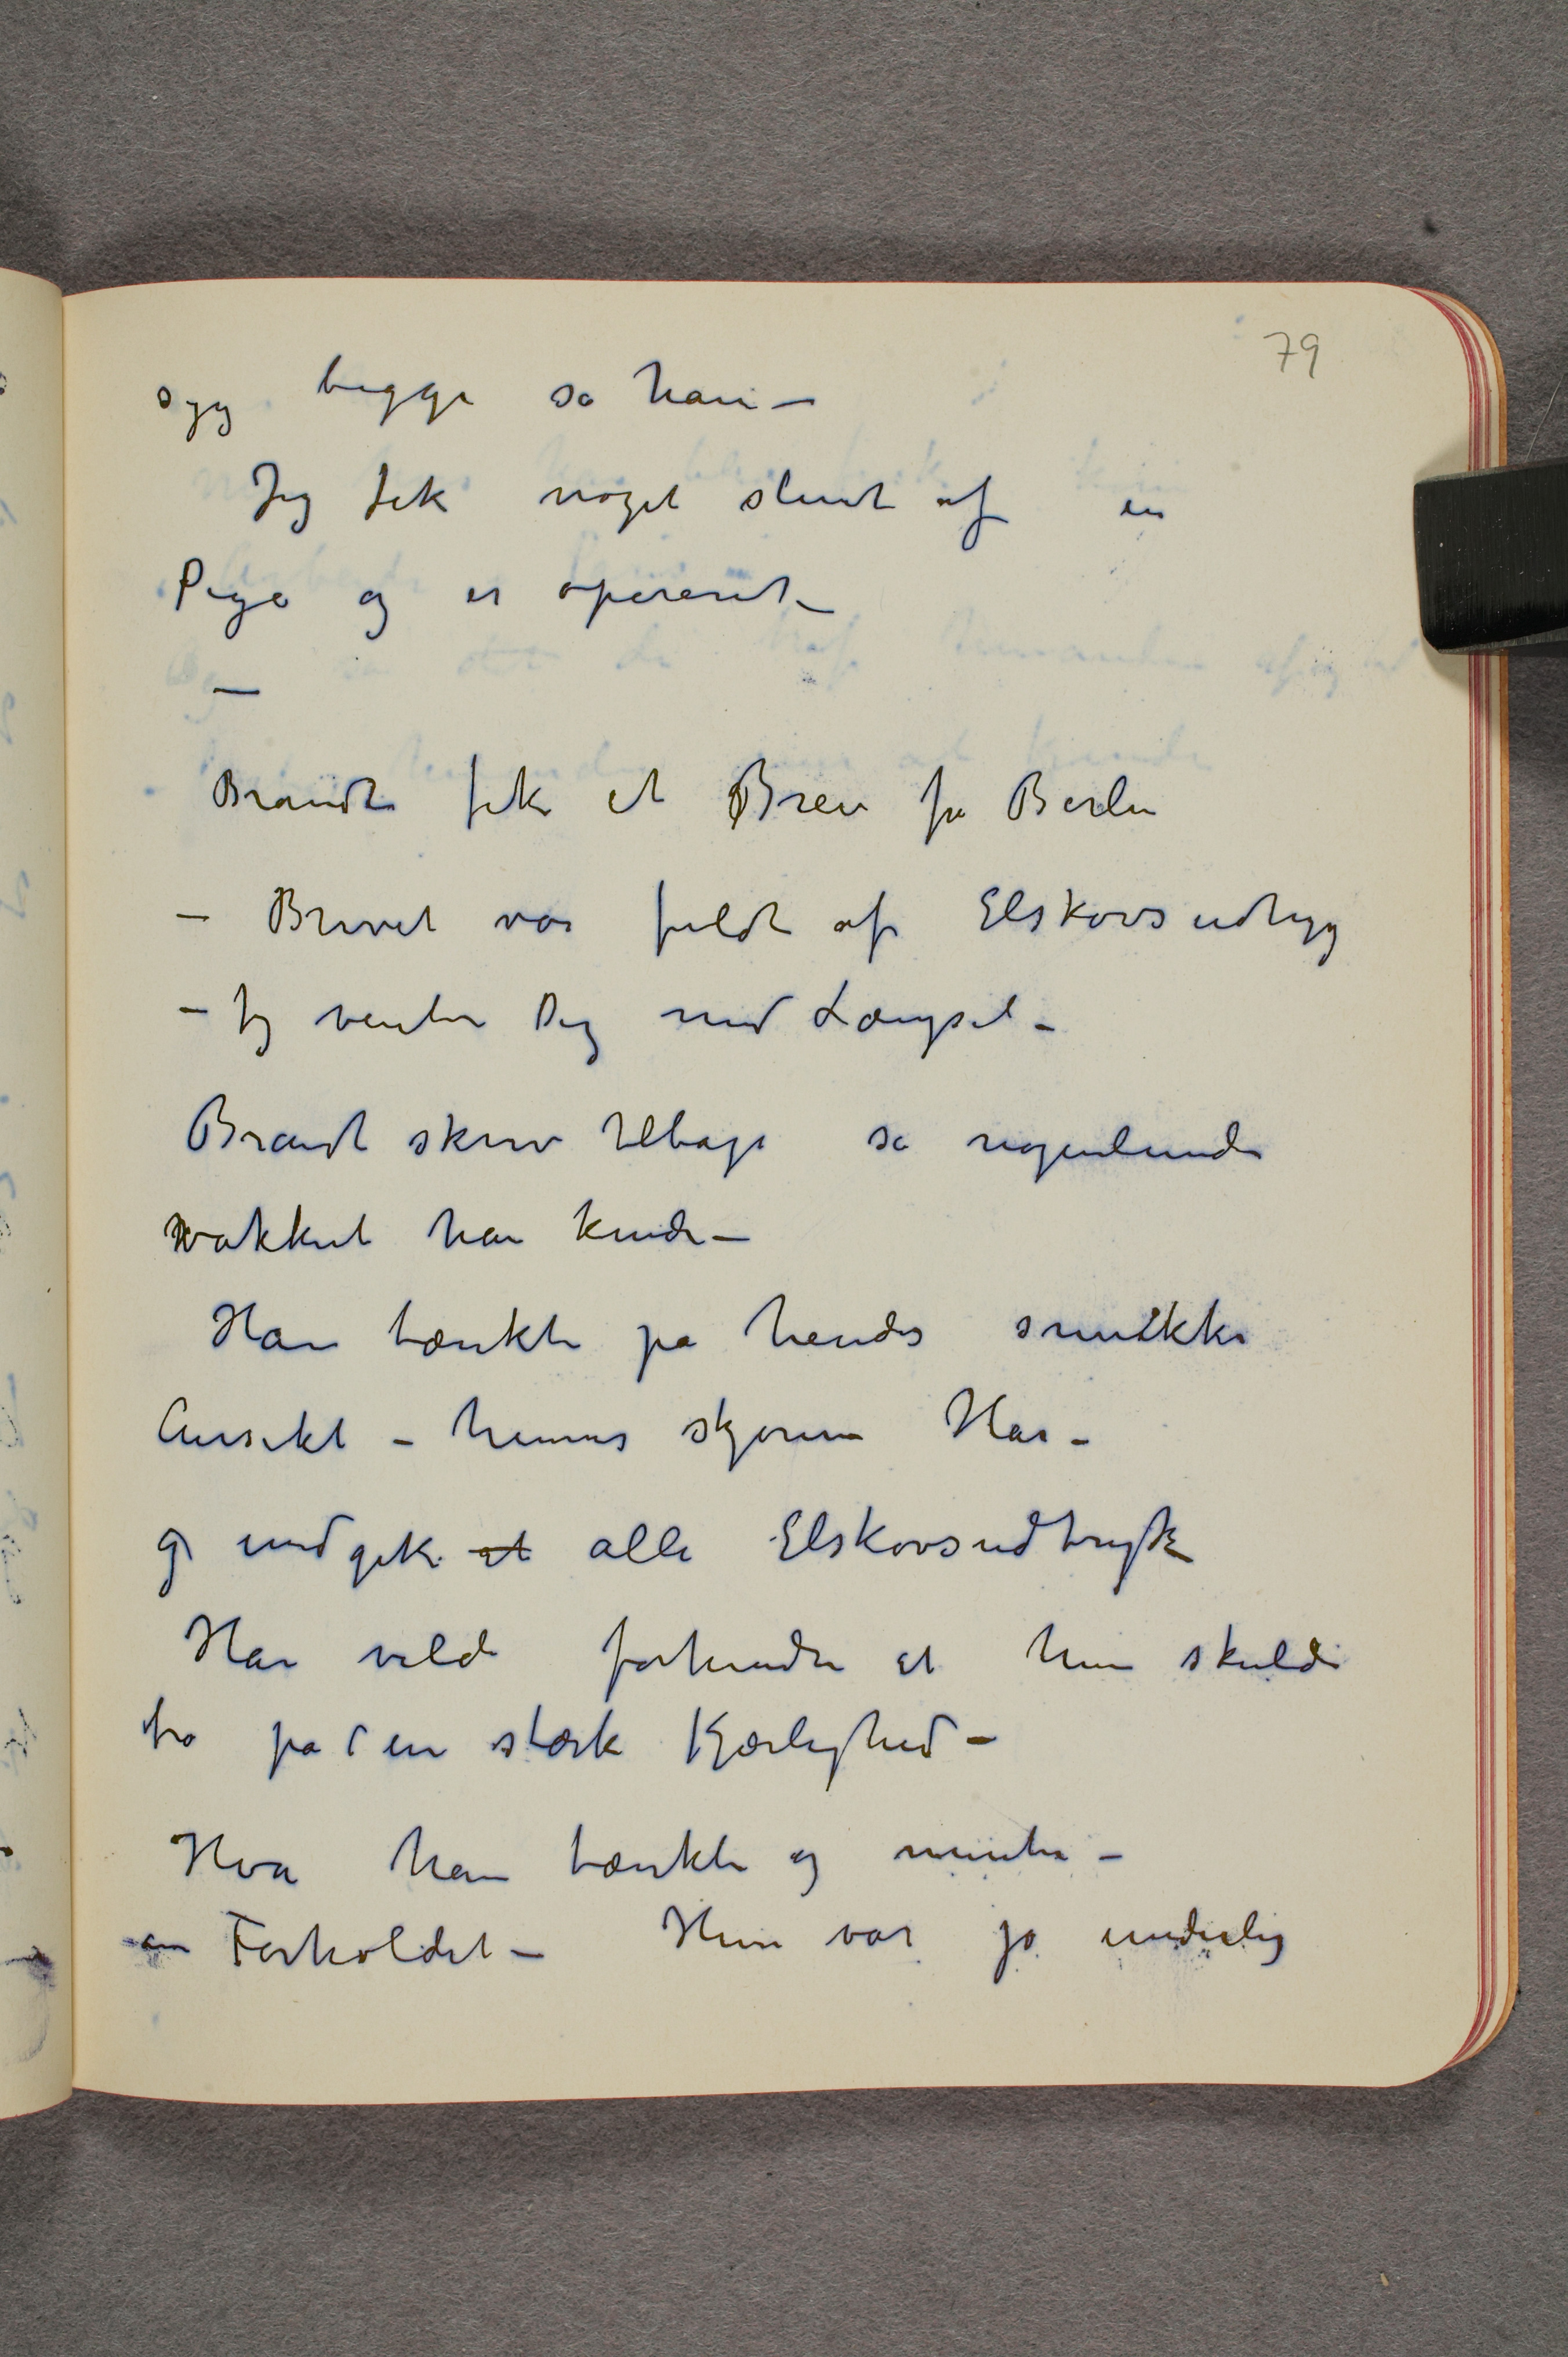 79
syg begge sa han –
Jeg fik noget slemt af en
Pige og er opereret –
–
Brandt fik et Brev fra Berlin
– Brevet var fuldt af Elskovsudtryg
– Jeg venter Dig med Længsel –
Brandt skrev tilbage så nogenlunde
vakkert han kunde –
Han tænkte på hendes smukke
Ansikt – hennes skjønne Hår –
og undgik at alle Elskovsudtryk
Han vilde forhindre at hun skulde
tro på den stærk Kjærlighed –
Hva han tænkte og mente –
om Forholdet – Hun var jo underlig